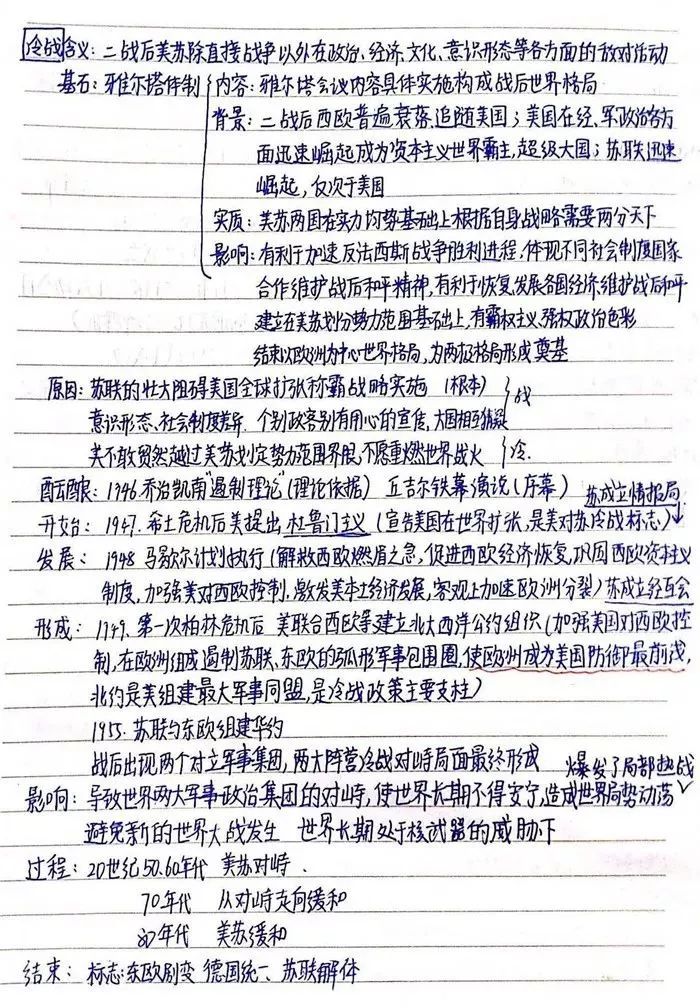 冷战含义：二战后美苏除直接战争以外在政治、经济、文化、意识形态等各方面的敌对活动
基石：雅尔塔体制 内容：雅尔塔会议内容具体实施构成战后世界格局
背景：二战后西欧普遍衰落、追随美国；美国在经、军政治各方
面迅速崛起成为资本主义世界霸主，超级大国；苏联迅速
崛起，仅次于美国
实质：美苏两国在实力均势基础上根据自身战略需要两分天下
影响：有利于加速反法西斯战争胜利进程，体现不同社会制度国家
合作维护战后和平精神，有利于恢复发展各国经济，维护战后和平
建立在美苏划分势力范围基础上，有霸权主义、强权政治色彩
结束以欧洲为中心世界格局，为两极格局形成奠基
原因：苏联的壮大阻碍美国全球扩张称霸战略实施（根本）
意识形态、社会制度差异 个别政客别有用心的宣传，大国相互猜疑 战
美不敢贸然越过美苏划定势力范围界限，不愿重燃世界战火 冷.
酝酿：1946.乔治凯南"遏制理论"（理论依据） 丘吉尔铁幕演说（序幕） 苏成立情报局
开始：1947.希土危机后美提出杜鲁门主义（宣告美国在世界扩张，是美对苏冷战标志）
发展：1948 马歇尔计划执行（解救西欧燃眉之急，促进西欧经济恢复，巩固西欧资本主义
制度，加强美对西欧控制，激发美本土经济发展，客观上加速欧洲分裂）苏成立经互会
形成：1949.第一次柏林危机后 美联合西欧等建立北大西洋公约组织（加强美国对西欧控
制，在欧洲组成遏制苏联、东欧的弧形军事包围圈，使欧洲成为美国防御最前线，
北约是美组建最大军事同盟，是冷战政策主要支柱）
1955.苏联与东欧组建华约
战后出现两个对立军事集团，两大阵营冷战对峙局面最终形成 爆发了局部热战
影响：导致世界两大军事政治集团的对峙，使世界长期不得安宁，造成世界局势动荡
避免新的世界大战发生 世界长期处于核武器的威胁下
过程：20世纪50.60年代 美苏对峙.
70年代 从对峙走向缓和
80年代 美苏缓和
结束：标志：东欧剧变 德国统一、苏联解体